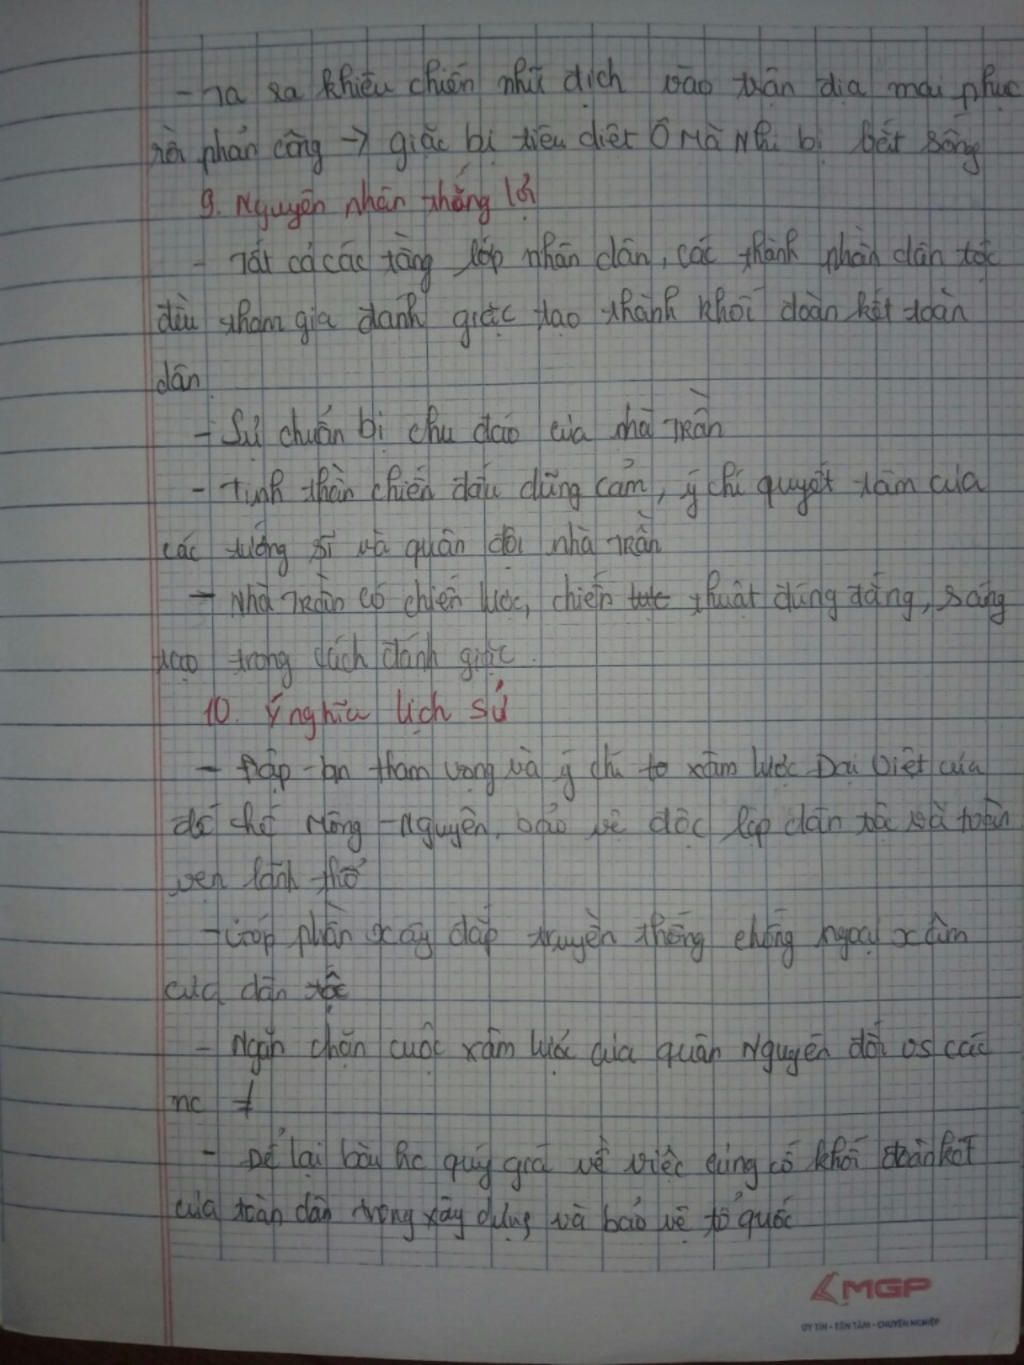 - ta ra khiêu chiến nhử địch vào trận địa mai phục
rồi phản công → giặc bị tiêu diệt Ô Mã Nhi bị bắt sống
9. Nguyên nhân thắng lợi
- Tất cả các tầng lớp nhân dân, các thành phần dân tộc
đều tham gia đánh giặc tạo thành khối đoàn kết toàn
dân
- Sự chuẩn bị chu đáo của nhà Trần
- Tinh thần chiến đấu dũng cảm, ý chí quyết tâm của
các tướng sĩ và quân đội nhà Trần
- Nhà Trần có chiến lược, chiến thuật đúng đắng, sáng
tạo trong cách đánh giặc.
10. Ý nghĩa lịch sử
- Đập tan tham vọng và ý chí xâm lược Đại Việt của
đế chế Mông - Nguyên, bảo vệ độc lập dân tộc và toàn
vẹn lãnh thổ
- Góp phần xây đắp truyền thống chống ngoại xâm
của dân tộc
- Ngăn chặn cuộc xâm lược của quân Nguyên đối vs các
nc ≠
- Để lại bài hc quý giá về việc củng cố khối đoàn kết
của toàn dân trong xây dựng và bảo vệ tổ quốc
MGP
UY TÍN - TẬN TÂM - CHUYÊN NGHIỆP